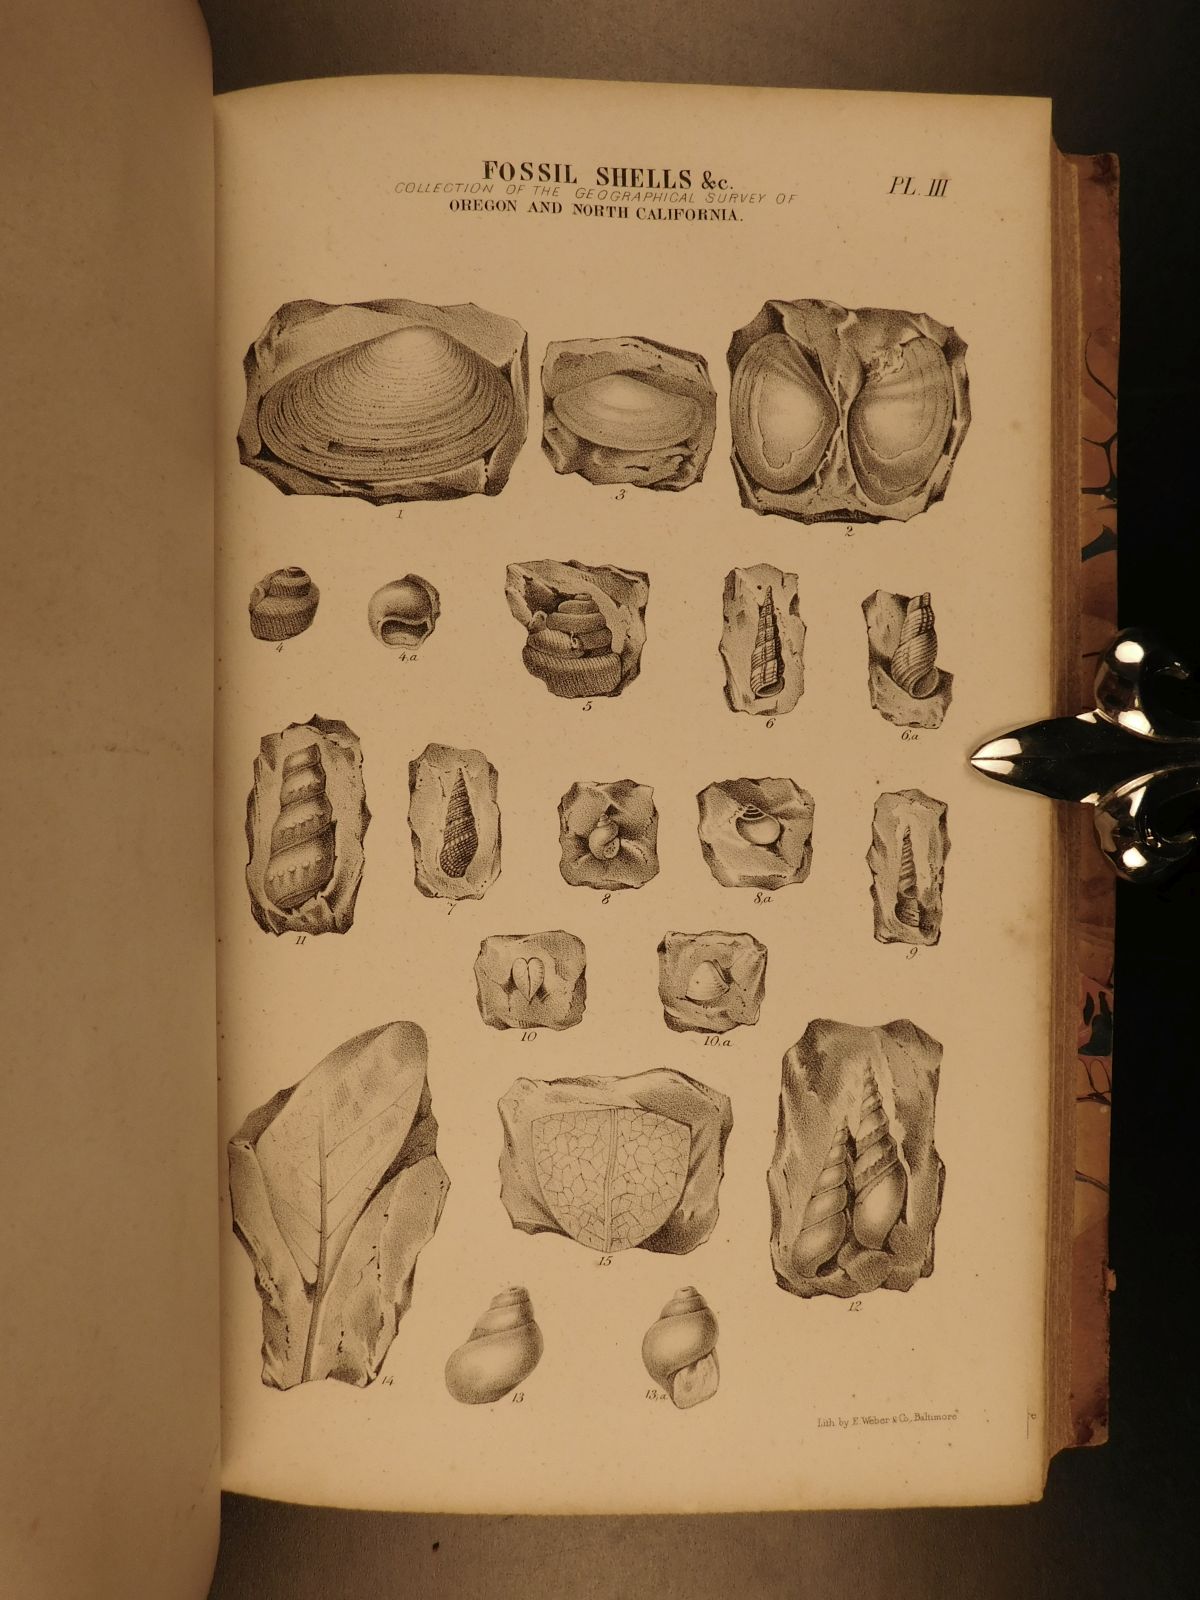 FOSSIL SHELLS &c.
PL. III
COLLECTION OF THE GEOGRAPHICAL SURVEY OF
OREGON AND NORTH CALIFORNIA.
1
3
2
4
4,a
5
6
6,a
11
7
8
8,a
9
10
10,a
14
15
12
13
13,a
Lith by E. Weber & Co, Baltimore